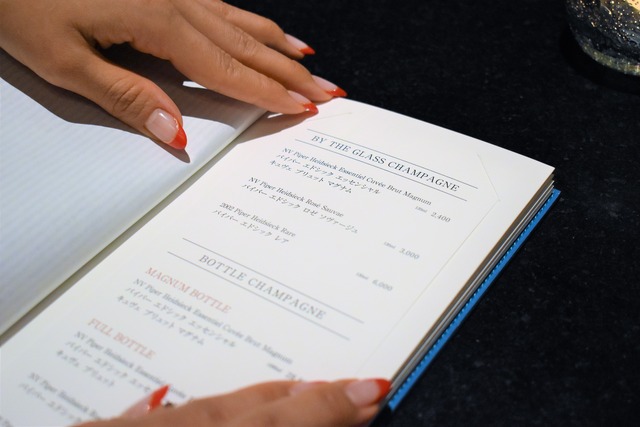 BY THE GLASS CHAMPAGNE
NV Piper Heidsieck Essentiel Cuvée Brut Magnum
パイパー エドシック エッセンシャル
キュヴェ ブリュット マグナム
2,400
NV Piper Heidsieck Rosé Sauvage
パイパー エドシック ロゼ ソヴァージュ
3,000
2002 Piper Heidsieck Rare
パイパー エドシック レア
6,000
BOTTLE CHAMPAGNE
MAGNUM BOTTLE
NV Piper Heidsieck Essentiel Cuvée Brut Magnum
パイパー エドシック エッセンシャル
キュヴェ ブリュット マグナム
FULL BOTTLE
NV Piper Heidsieck
パイパー エドシック エッセンシャル
キュヴェ ブリュット
NV Piper Heidsieck
パイパー エドシック